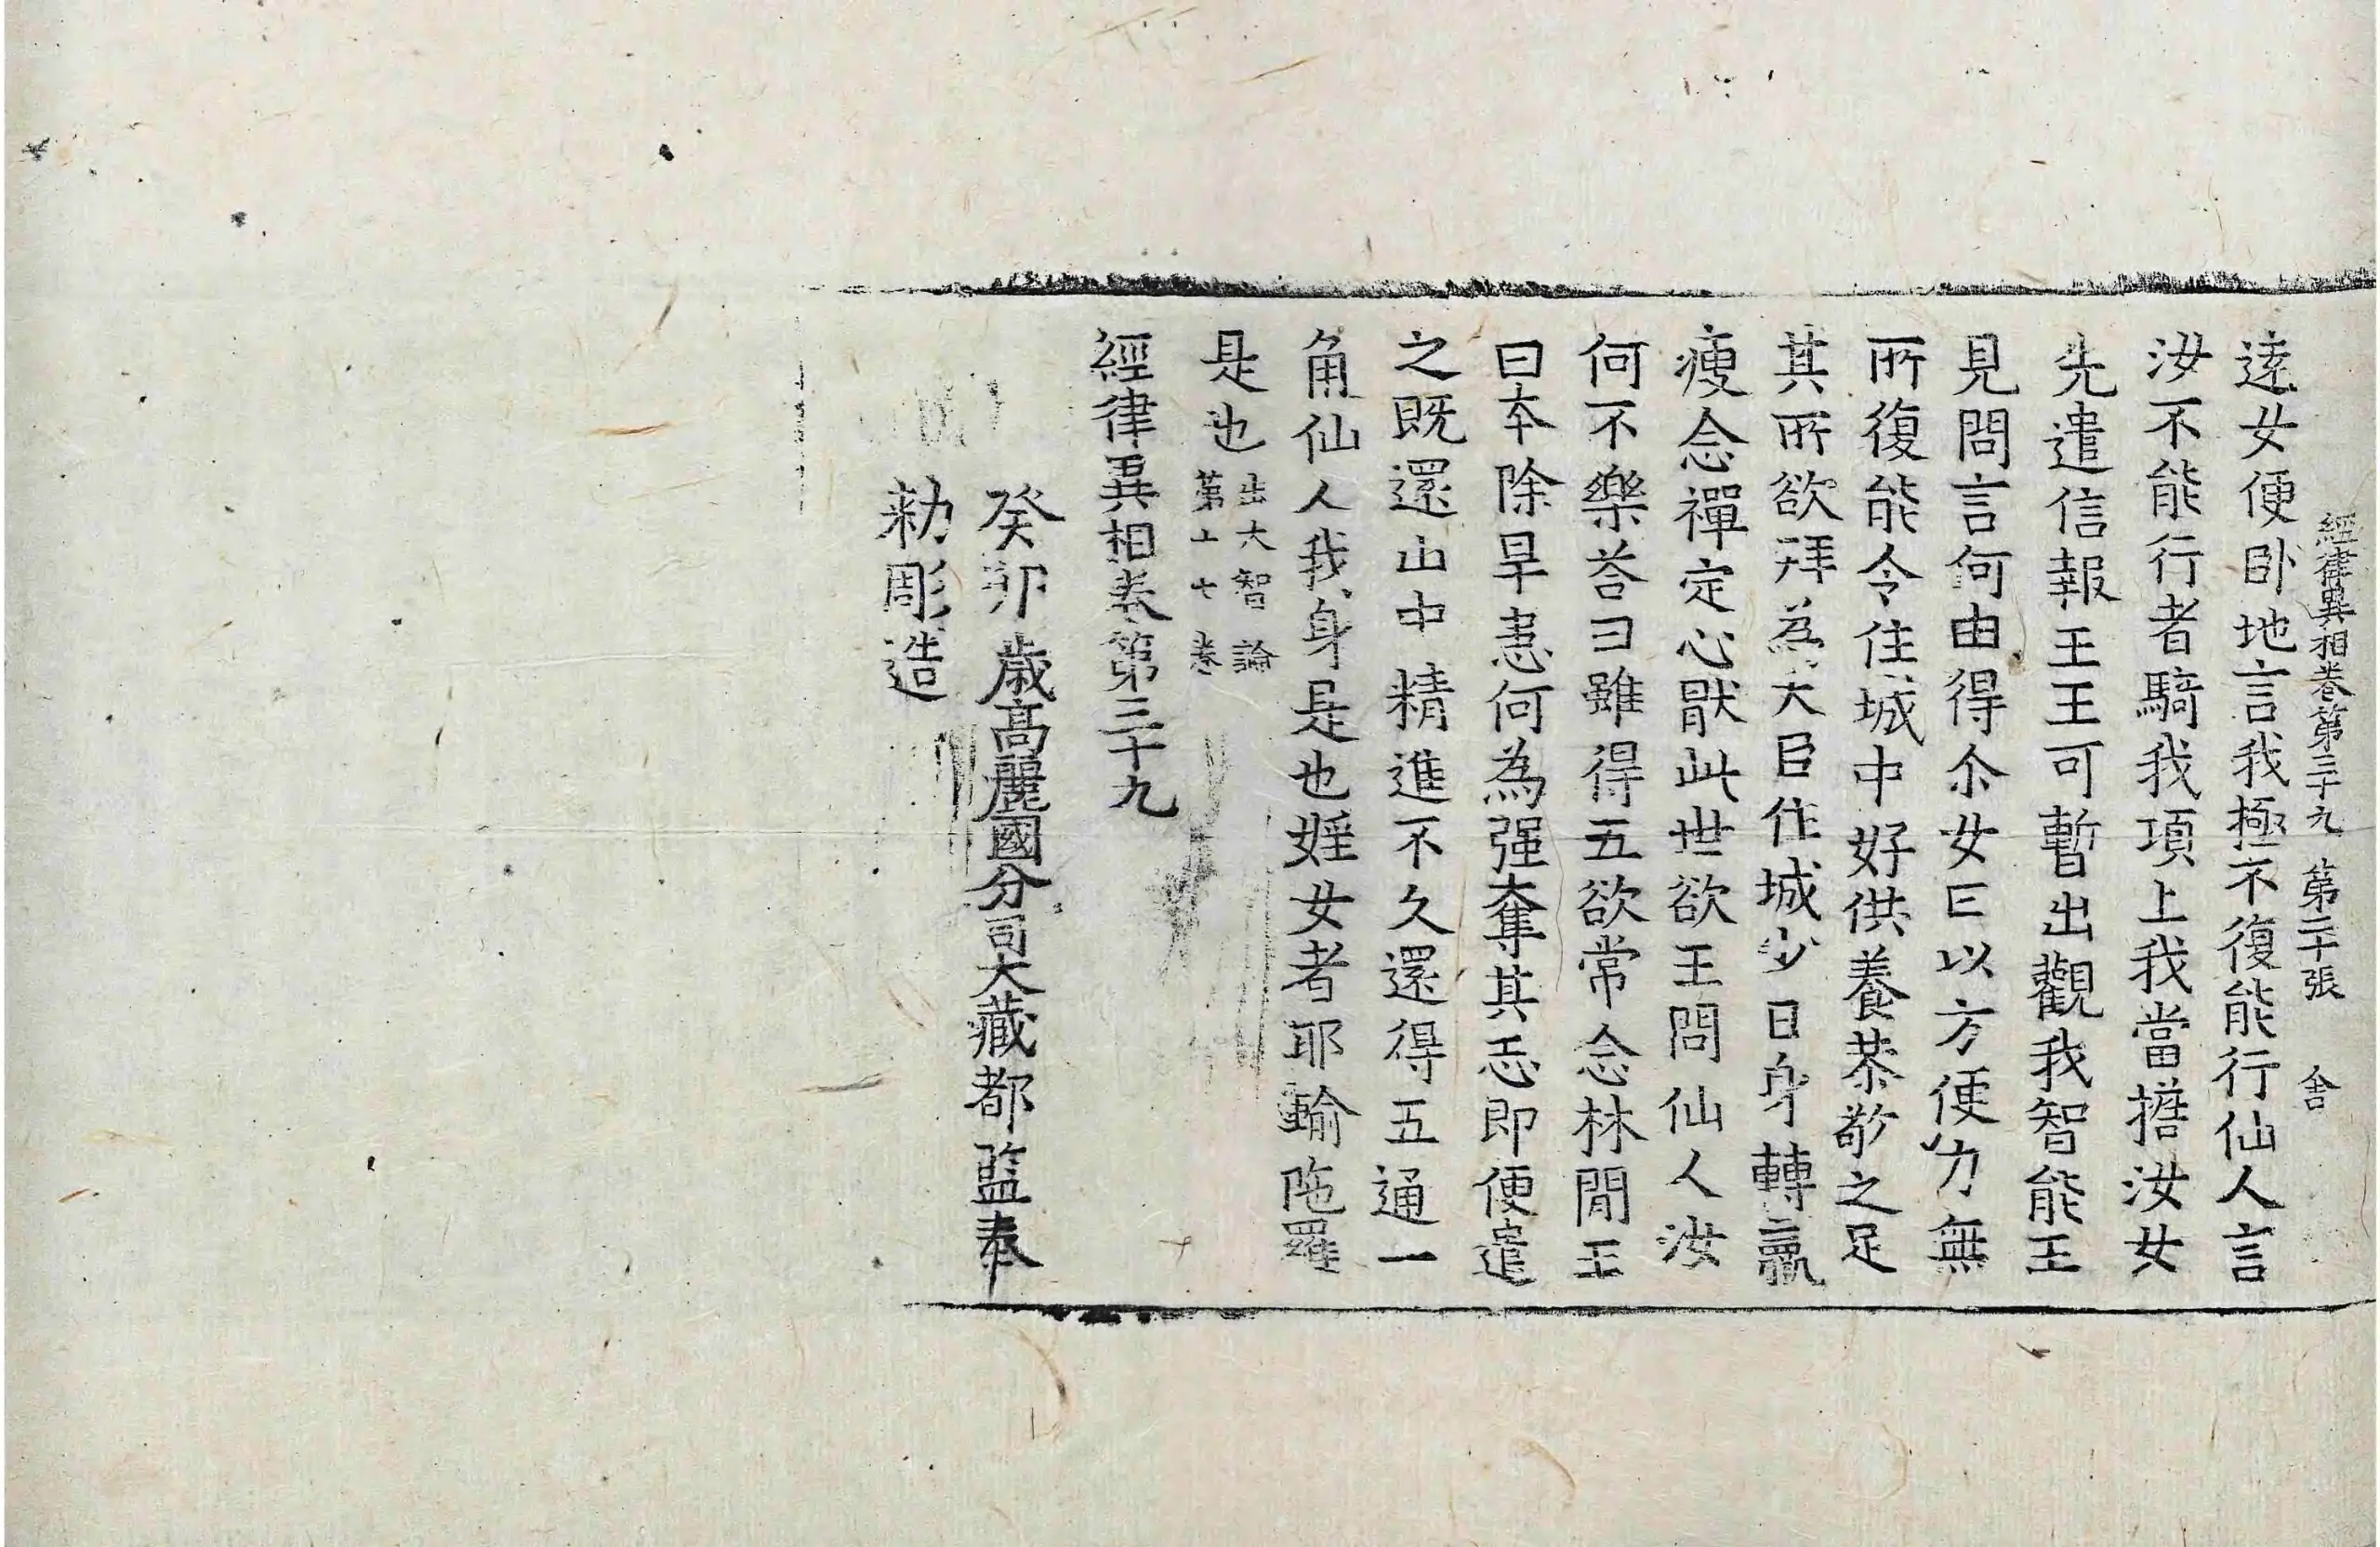 經律異相卷第三十九 第二十張 舍
逺女便卧地言我極不復能行仙人言
汝不能行者騎我項上我當擔汝女
先遣信報王王可暫出觀我智能王
見問言何由得尒女曰以方便力無
所復能令住城中好供養恭敬之足
其所欲拜為大臣住城少日身轉羸
瘦念禪定心猒此世欲王問仙人汝
何不樂荅曰雖得五欲常念林閒王
曰本除旱恚何為强奪其志即便遣
之既還山中精進不久還得五通一
角仙人我身是也婬女者耶輸陁羅
是也 出大智論
第十七卷
經律異相卷第三十九
癸卯歲高麗國分司大藏都監奉
勑彫造